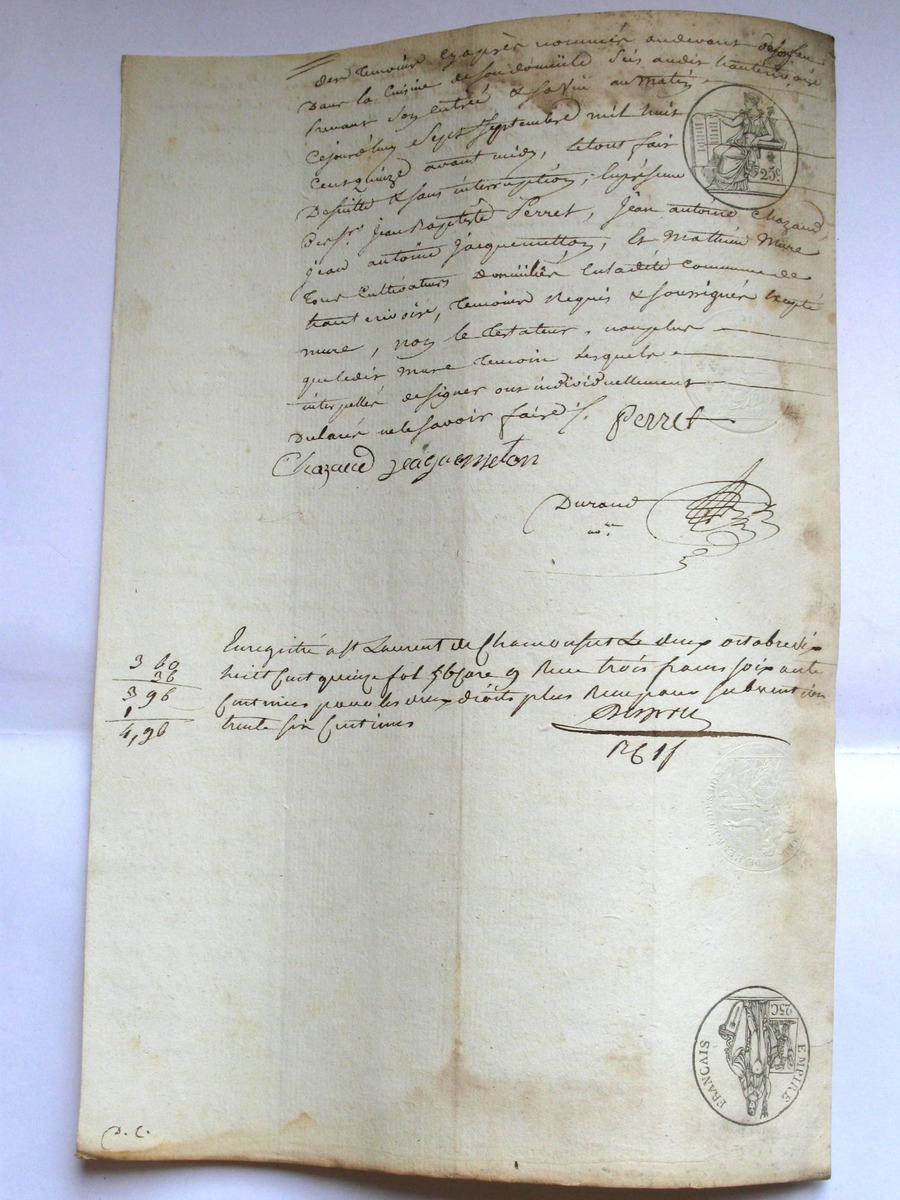 des temoins cy après nommés au devant du feu
Dans la Cuisine de Son domicille Sis audit hauterivoire
prenant Son entrée & Sa vüe au Matin
Cejourd'huy Sept Septembre mil huit
Cent quinze avant midy, le tout fait
De Suitte & sans interruption, En présence
Des Srs. Jean Baptiste Perret, Jean antoine Chazaud,
Jean antoine Jacquemetton, Et Mathieu Mure
tous Cultivateurs Domiciliés En ladite Commune de
hauterivoire, temoins Requis & Soussignés Excepté
mure, non le testateur, non plus
que ledit Mure temoin Lesquels
interpellés de signer ont individuellement
Declaré ne le Savoir faire /.
Perret
Chazaud Jaquemeton
Durand
nore
25c.
Enregistré a St Laurent de Chamousset Le deux octobre dix
huit Cent quinze fol 56 Care 9 Reçu trois francs soixante
Centimes pour les deux droits plus Reçu pour subvention
trente Six Centimes
3 60
36
3 96
1
4,96
25C
EMPIRE
FRANÇAIS